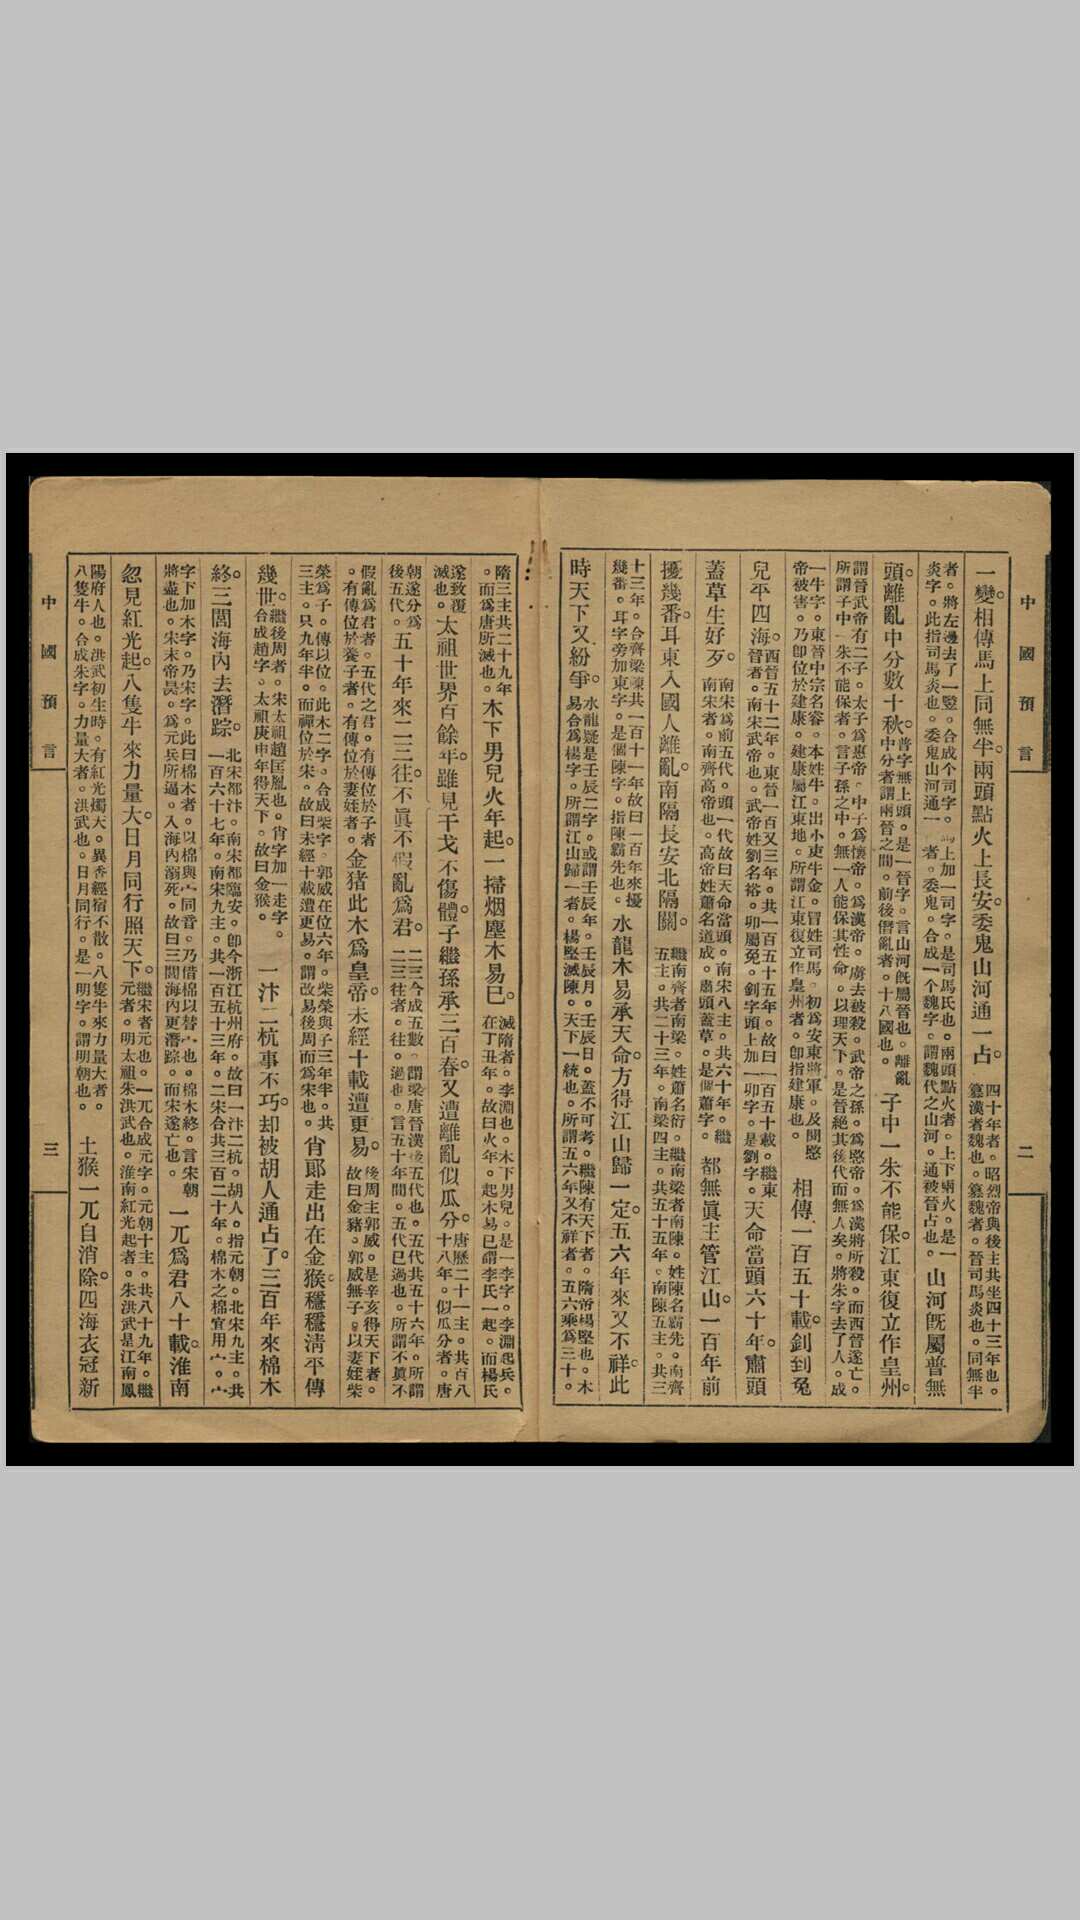 中國預言
二
一變相傳馬上同無半兩頭點火上長安委鬼山河通一占四十年者昭烈帝與後主共坐四十三年也
篡漢者魏也篡魏者晉司馬炎也同無半
者將左邊去了一豎合成个司字馬上加一司字是司馬氏也兩頭點火者上下兩火是一
炎字此指司馬炎也委鬼山河通一者委鬼合成一个魏字謂魏代之山河通被晉占也山河既屬普無
頭離亂中分數十秋普字無上頭是一晉字言山河既屬晉也離亂
中分者謂兩晉之間前後僭亂者十八國也子中一朱不能保江東復立作皇州
謂晉武帝有二子太子為惠帝中子為懷帝為漢帝虜去被殺武帝之孫為愍帝為漢將所殺而西晉遂亡
所謂子中一朱不能保者言子孫之中無一人能保其性命以理天下是晉絕其後代而無人矣將朱字去了人成
一牛字東晉中宗名睿本姓牛出小吏牛金冒姓司馬初為安東將軍及聞愍
帝被害乃卽位於建康建康屬江東地所謂江東復立作皇州者卽指建康也相傳一百五十載釗到兔
兒平四海西晉五十二年東晉一百又三年共一百五十五年故曰一百五十載繼東
晉者南宋武帝也武帝姓劉名裕卯屬兔釗字頭上加一卯字是劉字天命當頭六十年肅頭
蓋草生好歹南宋為前五代頭一代故曰天命當頭南宋八主共六十年繼
南宋者南齊高帝也高帝姓蕭名道成肅頭蓋草是個蕭字都無眞主管江山一百年前
擾幾番耳東入國人離亂南隔長安北隔關繼南齊者南梁姓蕭名衍繼南梁者南陳姓陳名霸先南齊
五主共二十三年南梁四主共五十五年南陳五主共三
十三年合齊梁陳共一百十一年故曰一百年來擾
幾番耳字旁加東字是個陳字指陳霸先也水龍木易承天命方得江山歸一定五六年來又不祥此
時天下又紛爭水龍疑是壬辰二字或謂壬辰年壬辰月壬辰日蓋不可考繼陳有天下者隋帝楊堅也木
易合為楊字所謂江山歸一者楊堅滅陳天下一統也所謂五六年又不祥者五六乘為三十
隋三主共二十九年
而為唐所滅也木下男兒火年起一掃烟塵木易已滅隋者李淵也木下男兒是一李字李淵起兵
在丁丑年故曰火年起木易已謂李氏一起而楊氏
遂致覆
滅也太祖世界百餘年雖見干戈不傷體子繼孫承三百春又遭離亂似瓜分唐歷二十一主共百八
十八年似瓜分者唐
朝遂分為
後五代五十年來二三往不眞不假亂為君二三合成五數謂梁唐晉漢後五代也五代共五十六年所謂
二三往者往過也言五十年間五代已過也所謂不眞不
假亂為君者五代之君有傳位於子者
有傳位於養子者有傳位於妻姪者金猪此木為皇帝未經十載遭更易後周主郭威是辛亥得天下者
故曰金豬郭威無子以妻姪柴
榮為子傳以位此木二字合成柴字郭威在位六年柴榮與子三年半共
三主只九年半而禪位於宋故曰未經十載遭更易謂改易後周而為宋也肖郞走出在金猴穩穩淸平傳
幾世繼後周者宋太祖趙匡胤也肖字加一走字
合成趙字太祖庚申年得天下故曰金猴一汴二杭事不巧却被胡人通占了三百年來棉木
終三閭海內去潛踪北宋都汴南宋都臨安卽今浙江杭州府故曰一汴二杭胡人指元朝北宋九主共
一百六十七年南宋九主共一百五十三年二宋合共三百二十年棉木之棉宜用宀宀
字下加木字乃宋字此曰棉木者以棉與宀同音乃借棉以替宀也棉木終言宋朝
將盡也宋末帝昺為元兵所逼入海內溺死故曰三閭海內更潛踪而宋遂亡也一兀為君八十載淮南
忽見紅光起八隻牛來力量大日月同行照天下繼宋者元也一兀合成元字元朝十主共八十九年繼
元者明太祖朱洪武也淮南紅光起者朱洪武是江南鳳
陽府人也洪武初生時有紅光燭天異香經宿不散八隻牛來力量大者
八隻牛合成朱字力量大者洪武也日月同行是一明字謂明朝也土猴一兀自消除四海衣冠新
中國預言
三